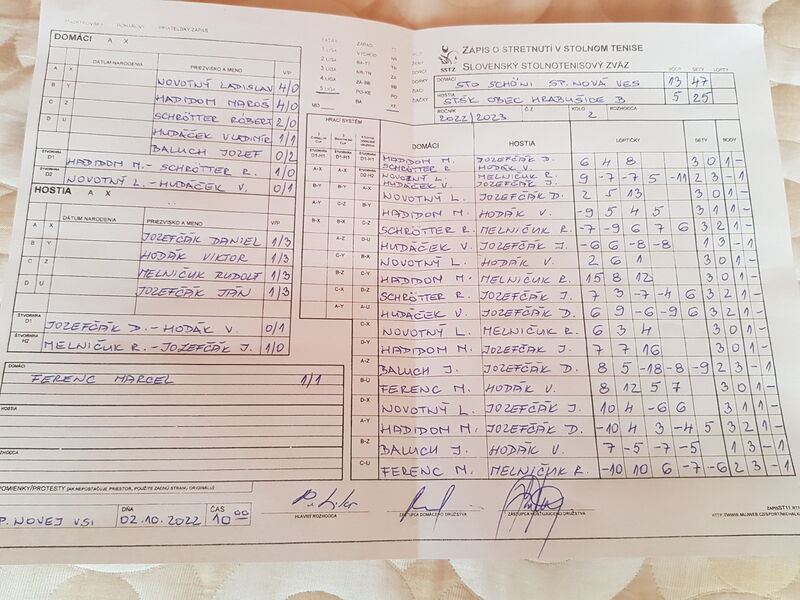 PRIATEĽSKÝ ZÁPAS
ZÁPIS O STRETNUTÍ V STOLNOM TENISE
SLOVENSKÝ STOLNOTENISOVÝ ZVÄZ
SSTZ
BODY SETY LOPTY
STO SCHÖNI SP. NOVÁ VES 13 47
ŠTŠK OBEC HRABUŠICE B 5 25
ROČNÍK 2022/2023 Č.Z. KOLO 2 ROZHODCA
DOMÁCI A X
DÁTUM NARODENIA PRIEZVISKO A MENO V/P
NOVOTNÝ LADISLAV 4/0
HADIDOM MAROŠ 4/0
SCHRÖTTER RÓBERT 2/0
HUDÁČEK VLADIMÍR 1/1
BALUCH JOZEF 0/2
ŠTVORHRA D1 HADIDOM M. - SCHRÖTTER R. 1/0
ŠTVORHRA D2 NOVOTNÝ L. - HUDÁČEK V. 0/1
HOSTIA A X
DÁTUM NARODENIA PRIEZVISKO A MENO V/P
JOZEFČÁK DANIEL 1/3
HODÁK VIKTOR 1/3
MELNIČUK RUDOLF 1/3
JOZEFČÁK JÁN 1/3
ŠTVORHRA D1 JOZEFČÁK D. - HODÁK V. 0/1
ŠTVORHRA H2 MELNIČUK R. - JOZEFČÁK J. 1/0
DOMÁCI
FERENC MARCEL 1/1
HOSTIA
ROZHODCA
HRACÍ SYSTÉM
DOMÁCI HOSTIA LOPTIČKY SETY BODY
D1-H1 HADIDOM M. SCHRÖTTER R. JOZEFČÁK D. HODÁK V. 6 4 8 3 0 1 -
D2-H2 NOVOTNÝ L. HUDÁČEK V. MELNIČUK R. JOZEFČÁK J. 9 -7 -7 5 -11 2 3 - 1
A-X NOVOTNÝ L. JOZEFČÁK D. 2 5 13 3 0 1 -
B-Y HADIDOM M. HODÁK V. -9 5 4 5 3 1 1 -
C-Z SCHRÖTTER R. MELNIČUK R. -7 -9 6 7 6 3 2 1 -
D-U HUDÁČEK V. JOZEFČÁK J. -6 6 -8 -8 1 3 - 1
NOVOTNÝ L. HODÁK V. 2 6 1 3 0 1 -
HADIDOM M. MELNIČUK R. 15 8 12 3 0 1 -
SCHRÖTTER R. JOZEFČÁK J. 7 3 -7 -4 6 3 2 1 -
HUDÁČEK V. JOZEFČÁK D. 6 9 -6 -9 6 3 2 1 -
C-X NOVOTNÝ L. MELNIČUK R. 6 3 4 3 0 1 -
D-Y HADIDOM M. JOZEFČÁK J. 7 7 16 3 0 1 -
A-Z BALUCH J. JOZEFČÁK D. 8 5 -18 -8 -9 2 3 - 1
B-U FERENC M. HODÁK V. 8 12 5 7 3 0 1 -
D-X NOVOTNÝ L. JOZEFČÁK J. 10 4 -6 6 3 1 1 -
A-Y HADIDOM M. JOZEFČÁK D. -10 4 3 -4 5 3 2 1 -
B-Z BALUCH J. HODÁK V. 7 -5 -7 -5 1 3 - 1
C-U FERENC M. MELNIČUK R. -10 10 6 -7 -6 2 3 - 1
POMIENKY/PROTESTY (AK NEPOSTAČUJE PRIESTOR, POUŽITE ZADNÚ STRANU ORIGINÁLU)
P. NOVEJ VSI DŇA 02.10.2022 ČAS 10 00
HLAVNÝ ROZHODCA ZÁSTUPCA DOMÁCEHO DRUŽSTVA ZÁSTUPCA HOSŤUJÚCEHO DRUŽSTVA